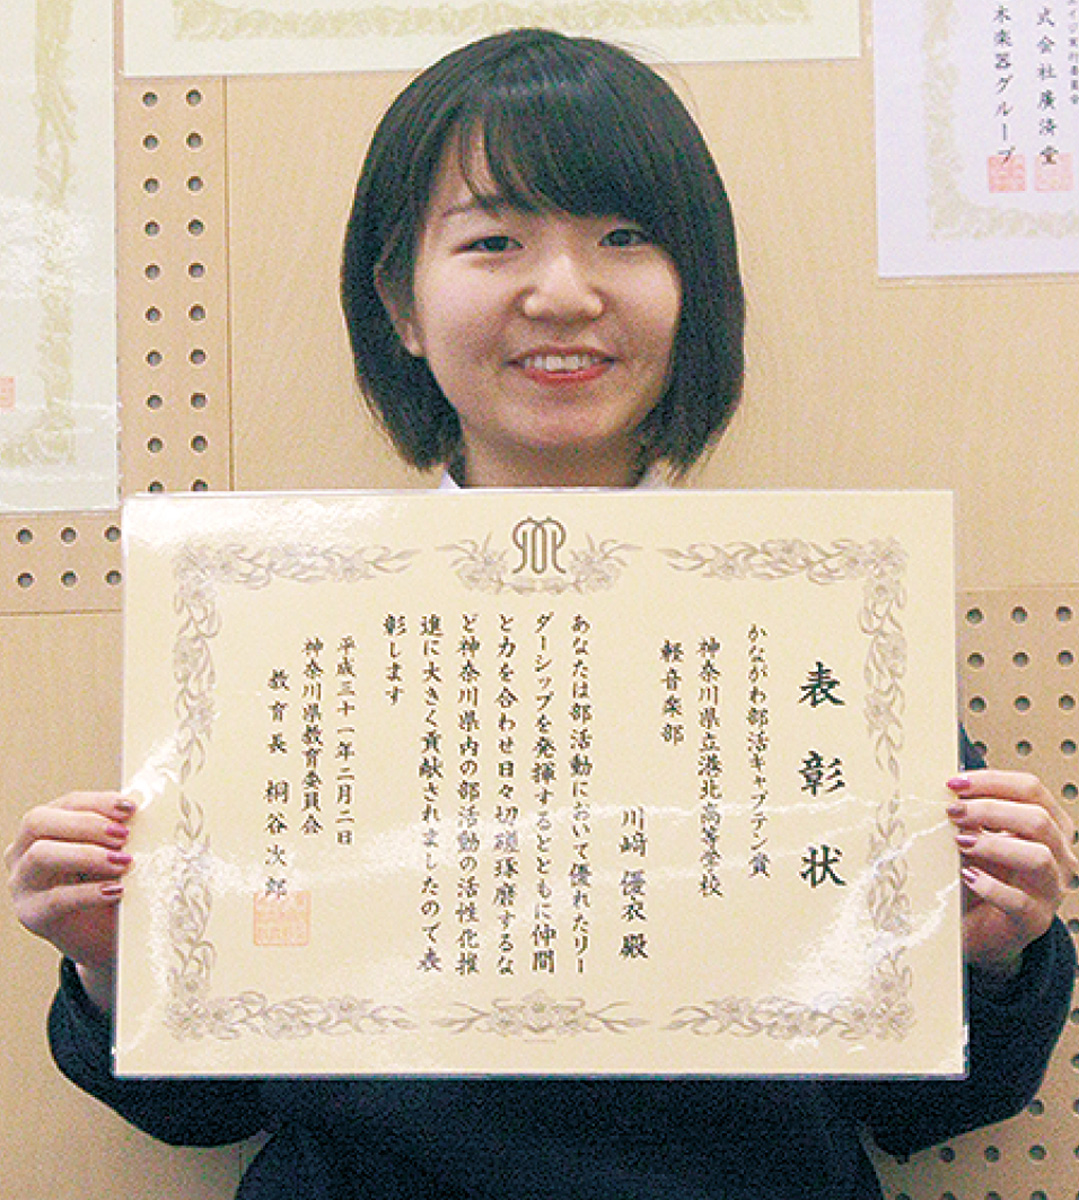 表彰状
かながわ部活キャプテン賞
神奈川県立港北高等学校
軽音楽部
川﨑 優衣 殿
あなたは部活動において優れたリー
ダーシップを発揮するとともに仲間
と力を合わせ日々切磋琢磨するな
ど神奈川県内の部活動の活性化推
進に大きく貢献されましたので表
彰します
平成三十一年二月二日
神奈川県教育委員会
教育長 桐谷次郎
式会社廣済堂
木楽器グループ